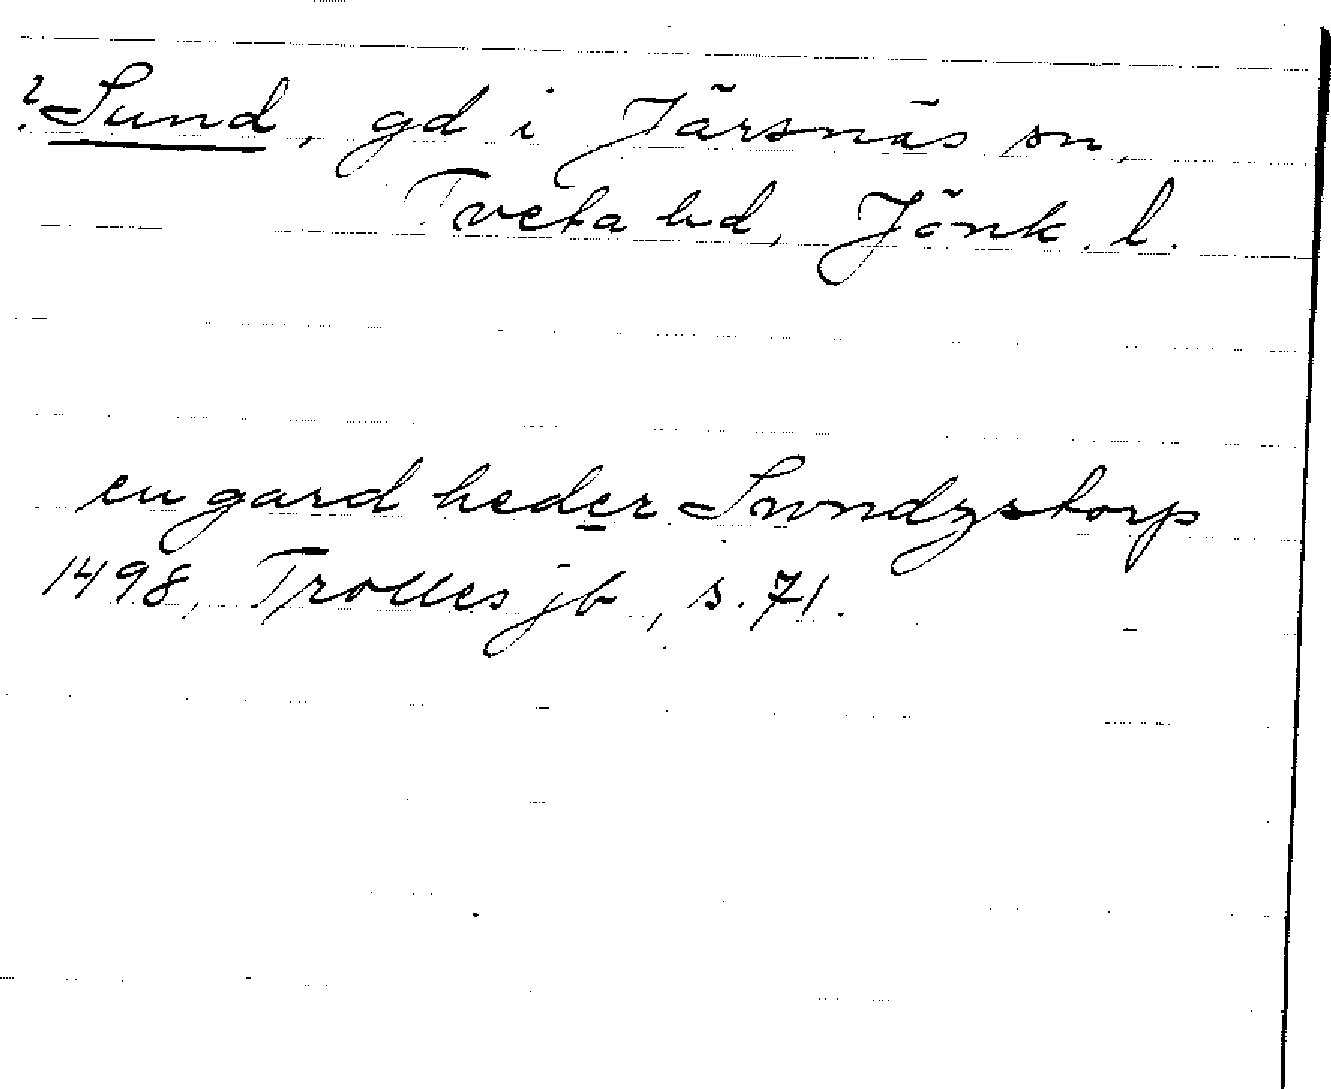 ? Sund, gd i Järsnäs sn,
Tveta hd, Jönk. l.
en gard heder Swndzstorp
1498, Trolles jb, s. 71.